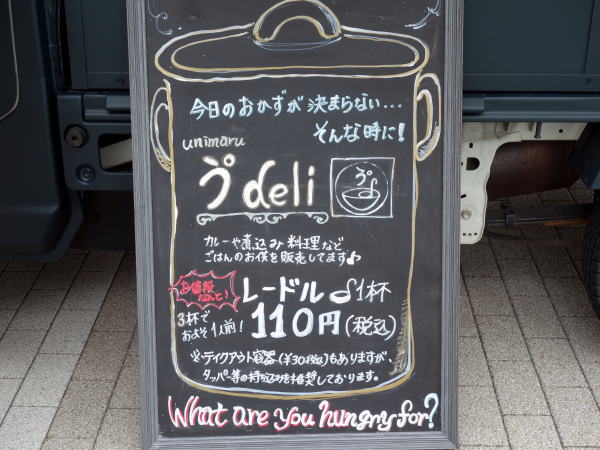 今日のおかずが決まらない...
そんな時に!
unimaru
う゜deli
う゜
カレーや煮込み料理など
ごはんのお供を販売してます♪
お値段なんと!
レードル1杯
3杯でおよそ1人前!
110円(税込)
※テイクアウト容器(¥30税込)もありますが、
タッパー等の持ち込みを推奨しております。
What are you hungry for?